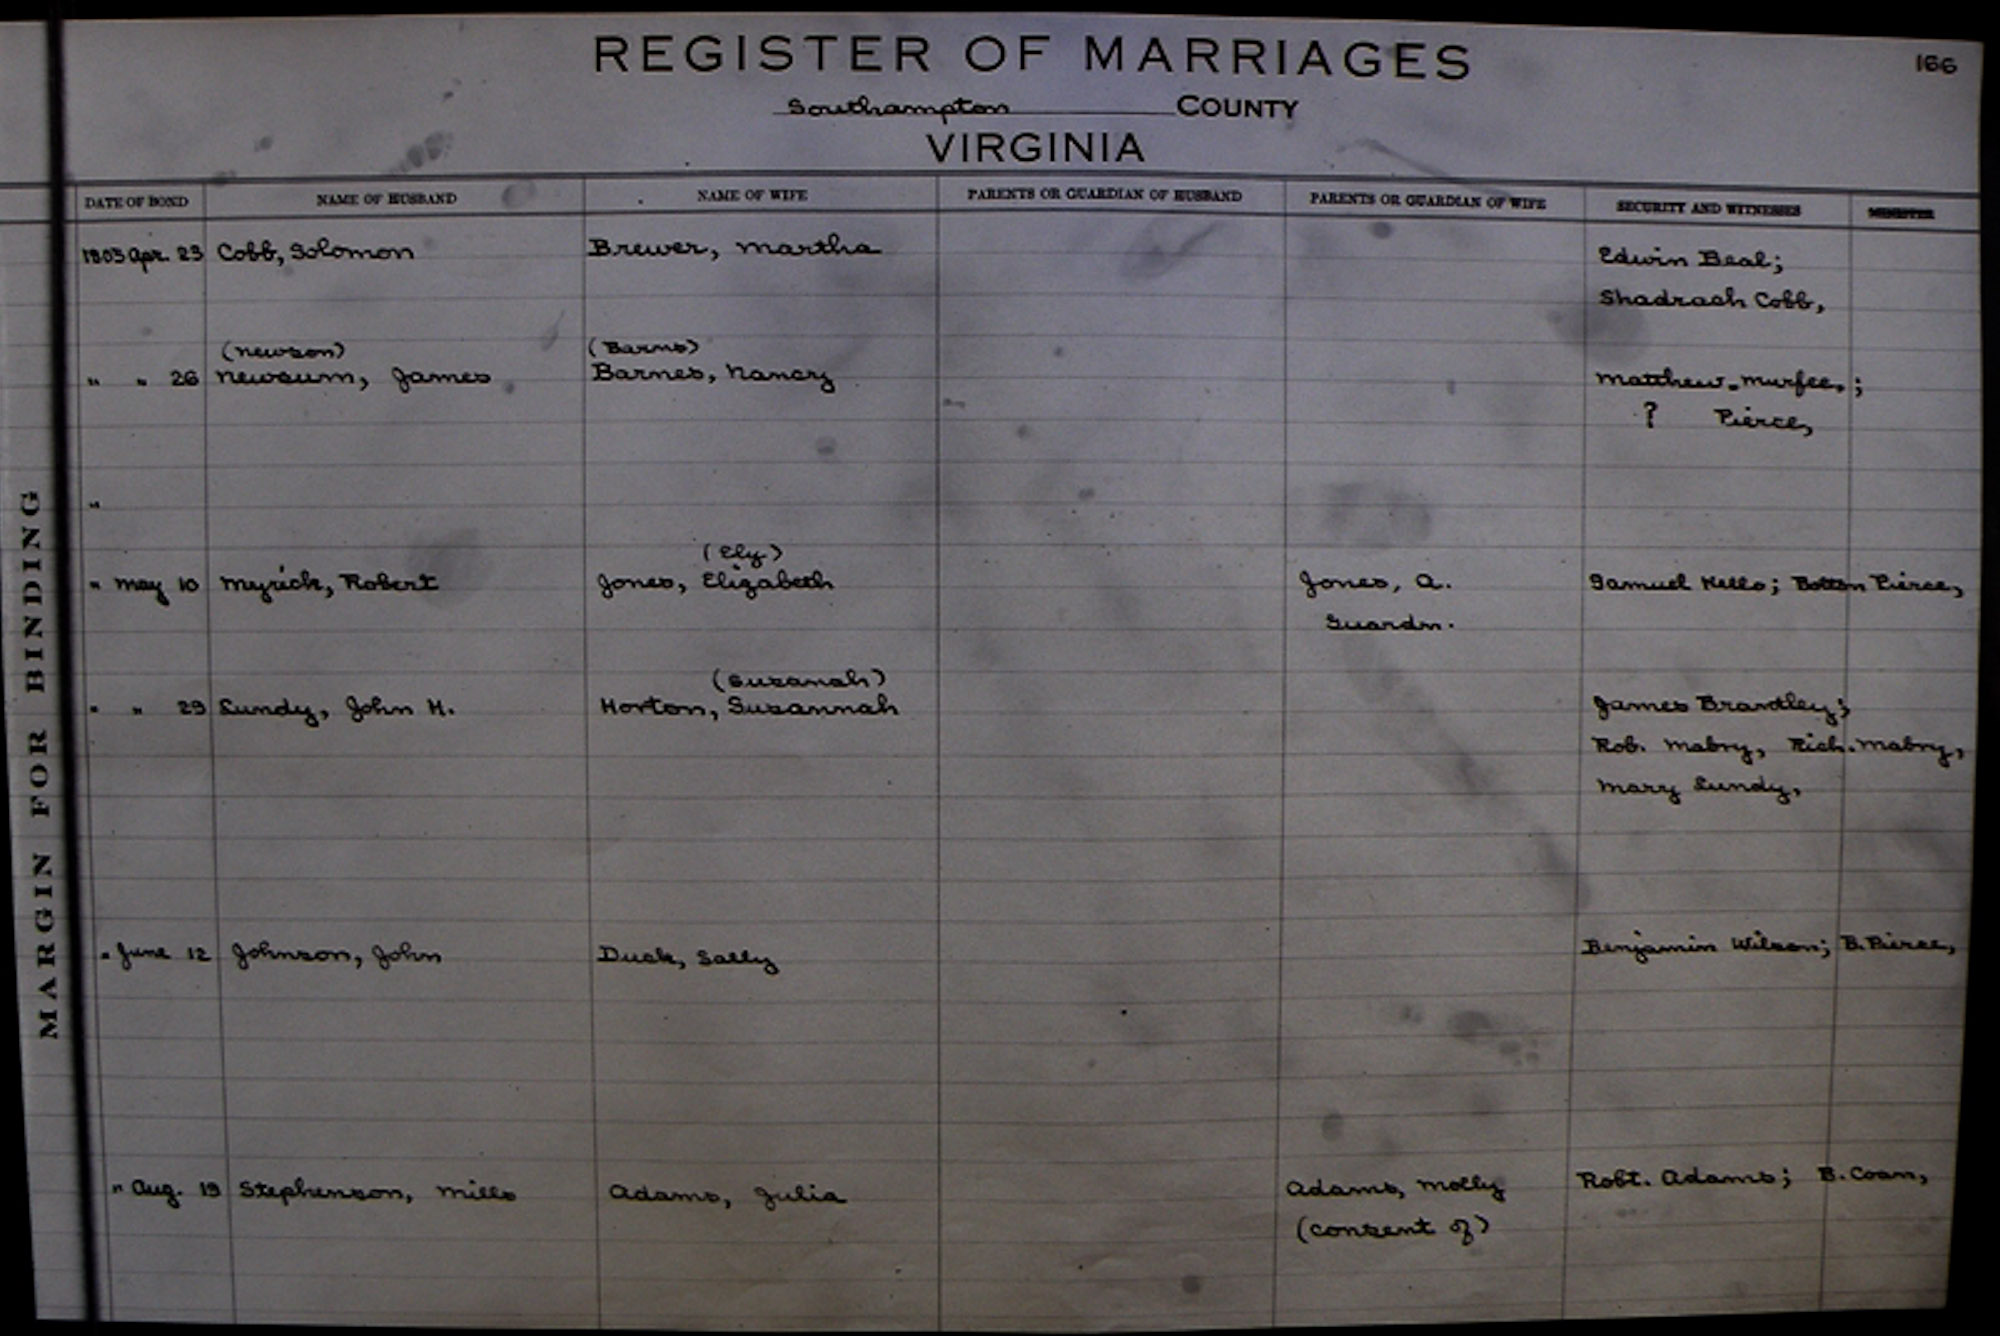 REGISTER OF MARRIAGES
166
Southampton COUNTY
VIRGINIA
DATE OF BOND NAME OF HUSBAND NAME OF WIFE PARENTS OR GUARDIAN OF HUSBAND PARENTS OR GUARDIAN OF WIFE SECURITY AND WITNESSES MINISTER
1803 Apr. 23 Cobb, Solomon Brewer, Martha Edwin Beal;
Shadrach Cobb,
(Newson) (Barns)
" " 26 Newsum, James Barnes, Nancy Matthew Murfee,;
? Pierce,
"
(Ely)
" May 10 Myrick, Robert Jones, Elizabeth Jones, A. Samuel Kello; Bolton Pierce,
Guardn.
(Suzanah)
" " 29 Lundy, John H. Horton, Susannah James Brantley;
Rob. Mabry, Rich. Mabry,
Mary Lundy,
" June 12 Johnson, John Duck, Sally Benjamin Wilson; B. Pierce,
" Aug. 19 Stephenson, Mills Adams, Julia Adams, Molly Robt. Adams; B. Coan,
(consent of)
MARGIN FOR BINDING